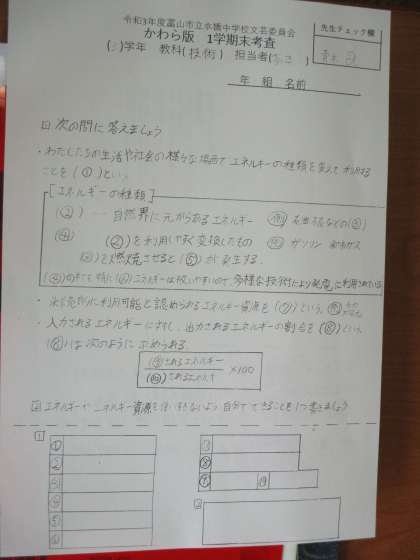 令和3年度富山市立水橋中学校文芸委員会
かわら版 1学期末考査
先生チェック欄
(3)学年 教科(技術) 担当者( )
年 組 名前
1 次の問に答えましょう
・わたしたちが生活や社会の様々な場面でエネルギーの種類を変えて利用する
ことを(①)という。
[エネルギーの種類]
(②)…自然界に元からあるエネルギー 例 石油 石炭などの(③)
(④) (②)を利用しやすく変換したもの 例 ガソリン 都市ガス
(③)を燃焼させると(⑤)が発生する。
(④)の中でも特に(⑥)エネルギーは扱いやすいので、多様な技術により発電し、に利用されている
・永続的に利用可能と認められるエネルギー資源を(⑦)という。例
・入力されるエネルギーに対し、出力されるエネルギーの割合を(⑧)という。
(⑧)は次のように求められる
(⑨)されるエネルギー
(⑩)されるエネルギー ×100
2 エネルギーやエネルギー資源を使いすぎないよう自分でできることを1つ書きましょう
1
①
②
③
④
⑤
⑥
⑦
⑧
⑨ ⑩
2